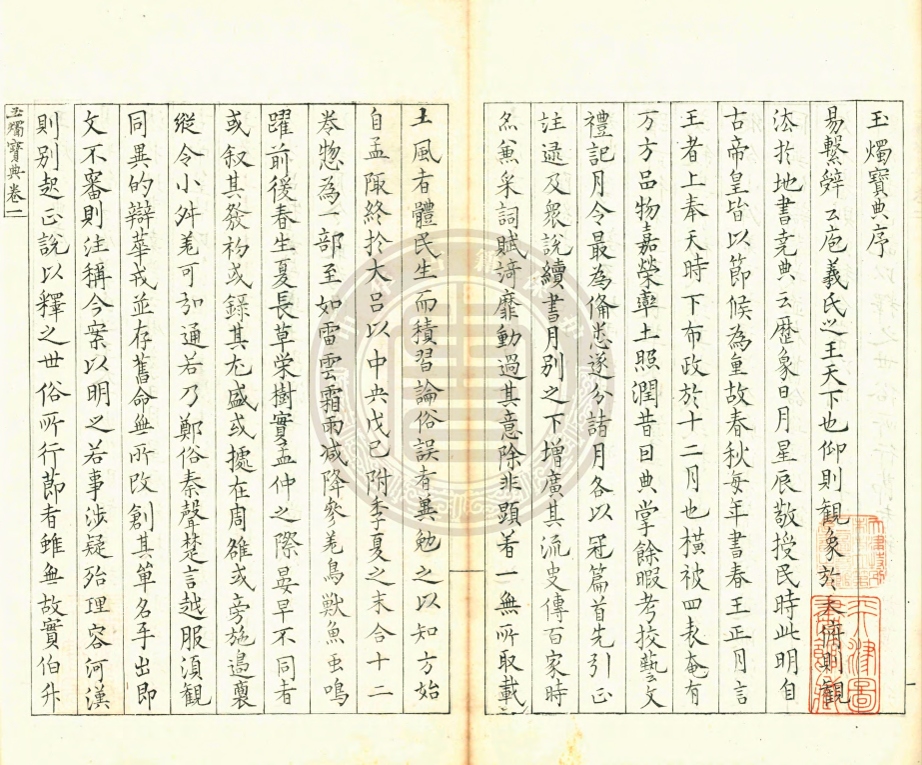 玉燭寶典序
易繫辭云庖羲氏之王天下也仰則觀象於天俯則觀
法於地書堯典云歷象日月星辰敬授民時此明自
古帝皇皆以節候為重故春秋每年書春王正月言
王者上奉天時下布政於十二月也橫被四表奄有
万方品物嘉榮率土照潤昔日典掌餘暇考挍藝文
禮記月令最為俻悉遂分諸月各以冠篇首先引正
註逮及眾說續書月別之下增廣其流史傳百家時
亦兼采詞賦綺靡動過其意除非顯著一無所取載
土風者體民生而積習論俗誤者兾勉之以知方始
自孟陬終於大呂以中央戊己附季夏之末合十二
卷惣為一部至如雷雲霜雨减降參差鳥獸魚虫鳴
躍前後春生夏長草荣樹實孟仲之際晏早不同者
或叙其發初或録其尤盛或據在周雒或旁施邊裔
縱令小舛差可弘通若乃鄭俗秦聲楚言越服湏觀
同異的辯華戎並存舊命無所改創其單名手出即
文不審則注稱今案以明之若事涉疑殆理容河漢
則別起正說以釋之世俗所行節者雖無故實伯升
玉燭寶典卷一
一